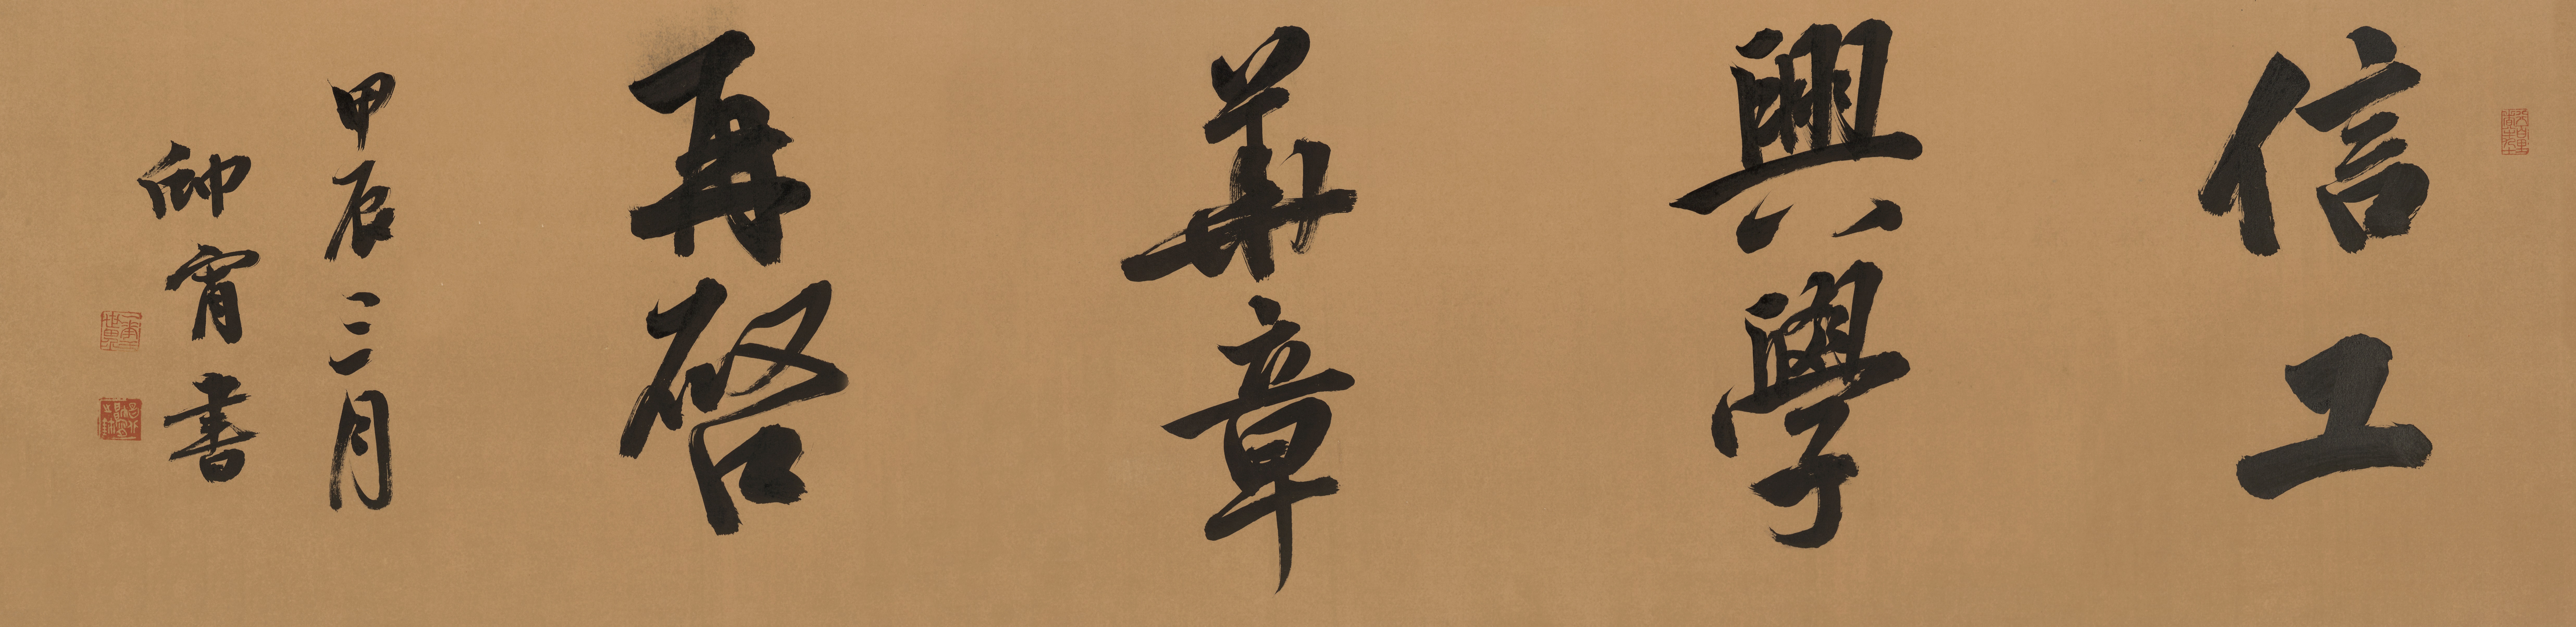 信工
興學
華章
再啓
甲辰三月
宵書